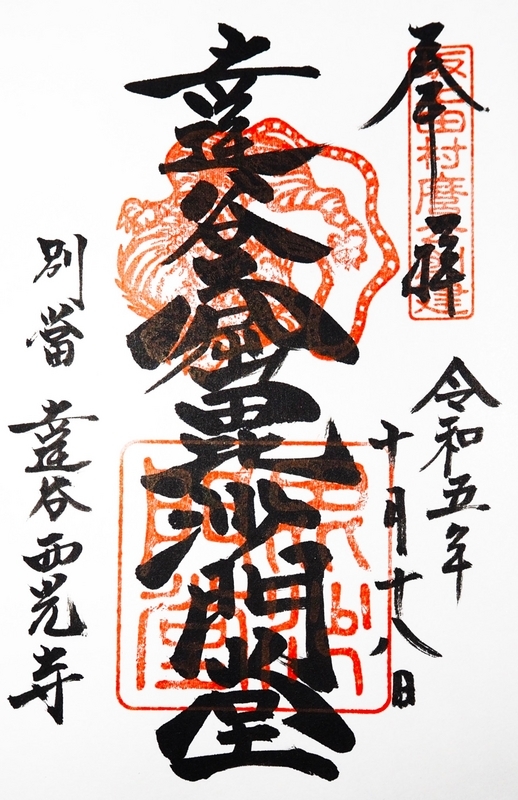 奉拝
坂上田村麿公創建
令和五年
十月十八日
達谷窟毘沙門堂
毘沙門堂
別當
達谷西光寺